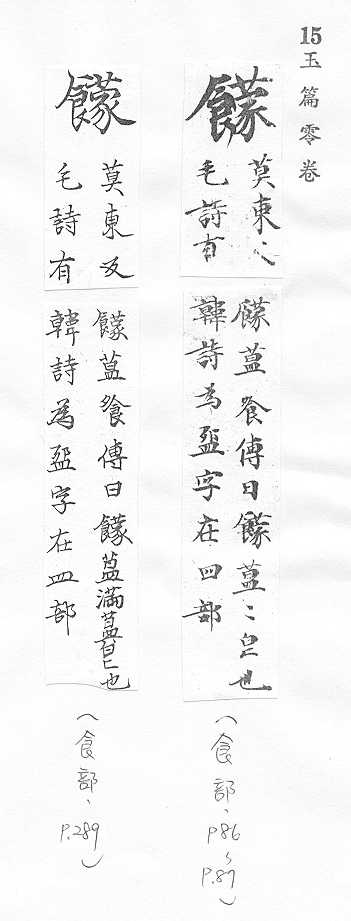 15玉篇零卷
饛
莫東〻
毛詩有
饛簋飱傳曰饛簋〻皃也
韓詩為字在四部
(食部、P86~P.87)
饛
莫東反
毛詩有
饛簋飱傳曰饛簋滿簋皃也
韓詩為字在皿部
(食部、P.289)